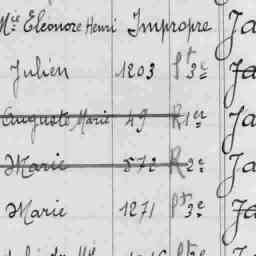 Mie Eléonore Henri Impropre Ja
Julien 1203 Pt 3e Ja
Auguste Marie 49 R 1er Ja
Marie 872 R 2e Ja
Marie 1271 Pt 3e Ja